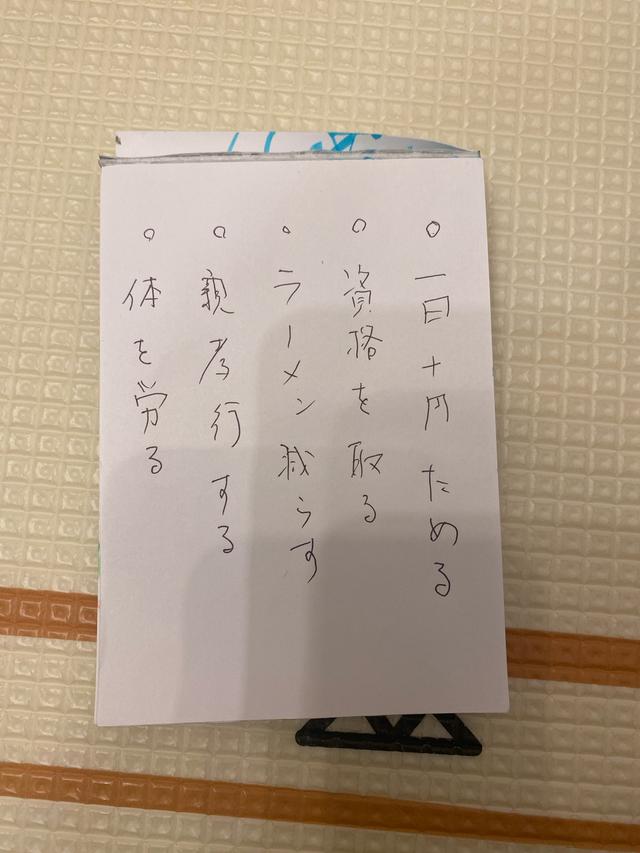 ○一日十円ためる
○資格を取る
○ラーメン減らす
○親孝行する
○体を労る